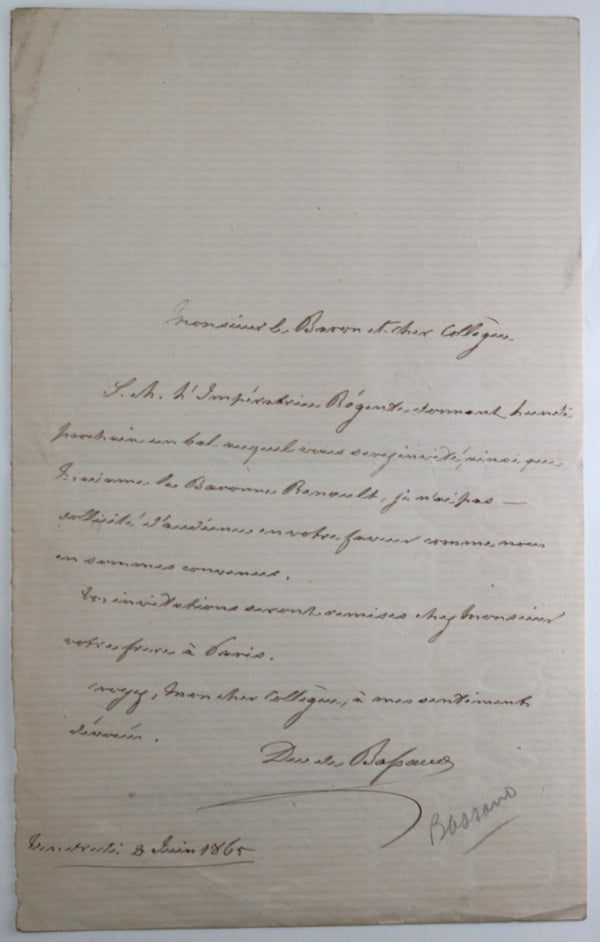 Monsieur le Baron et cher Collègue,
S. M. l'Impératrice Régente, donnant Lundi
prochain un bal auquel vous serez invité, ainsi que
Madame la Baronne Renault, je n'ai pas —
sollicité d'audience en votre faveur comme nous
en sommes convenus.
invitations seront remises chez Monsieur
votre frere à Paris.
Croyez, Mon cher Collègue, à mes sentiment
dévoués.
Duc de Bassano
Bassano
Vendredi Juin 1865